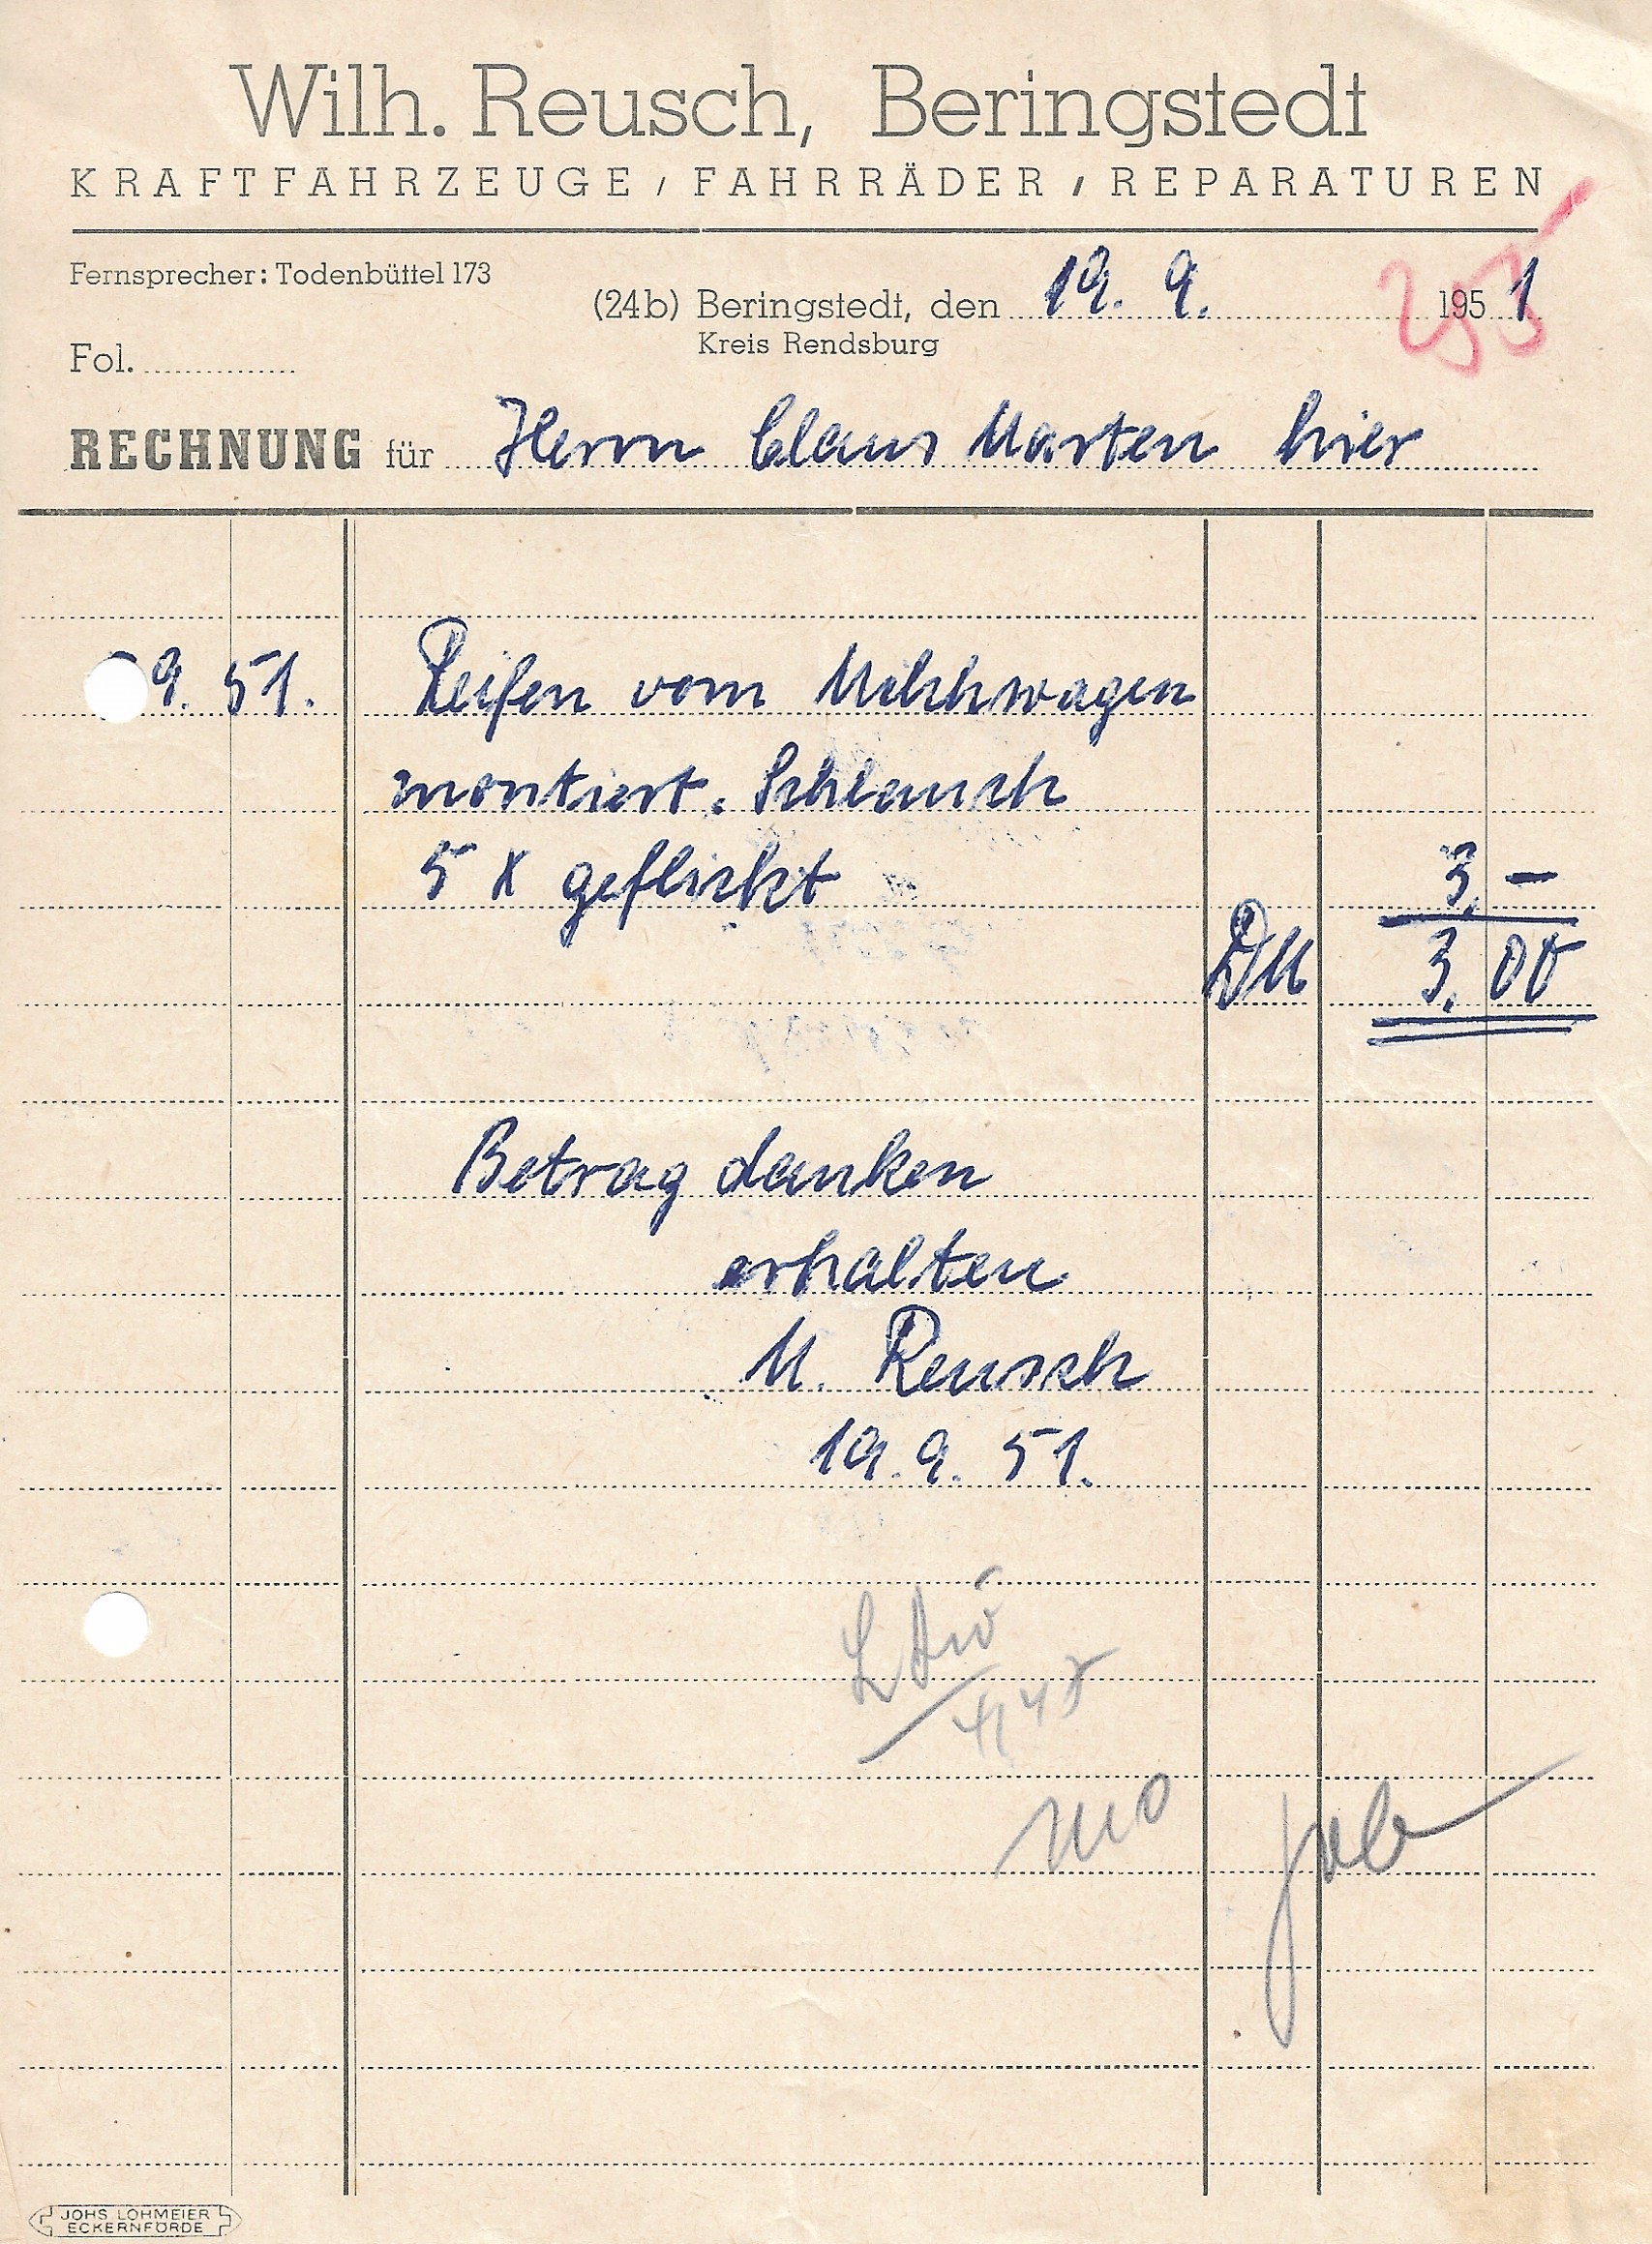 Wilh. Reusch, Beringstedt
KRAFTFAHRZEUGE / FAHRRÄDER / REPARATUREN
Fernsprecher: Todenbüttel 173
(24b) Beringstedt, den 19. 9. 1951
Kreis Rendsburg
255
Fol.
RECHNUNG für Herrn Claus Marten hier
9. 51. Reifen vom Milchwagen
montiert. Schlauch
5 X geflickt 3,-
DM 3,00
Betrag danken
erhalten
M. Reusch
19. 9. 51.
JOHS. LOHMEIER
ECKERNFÖRDE